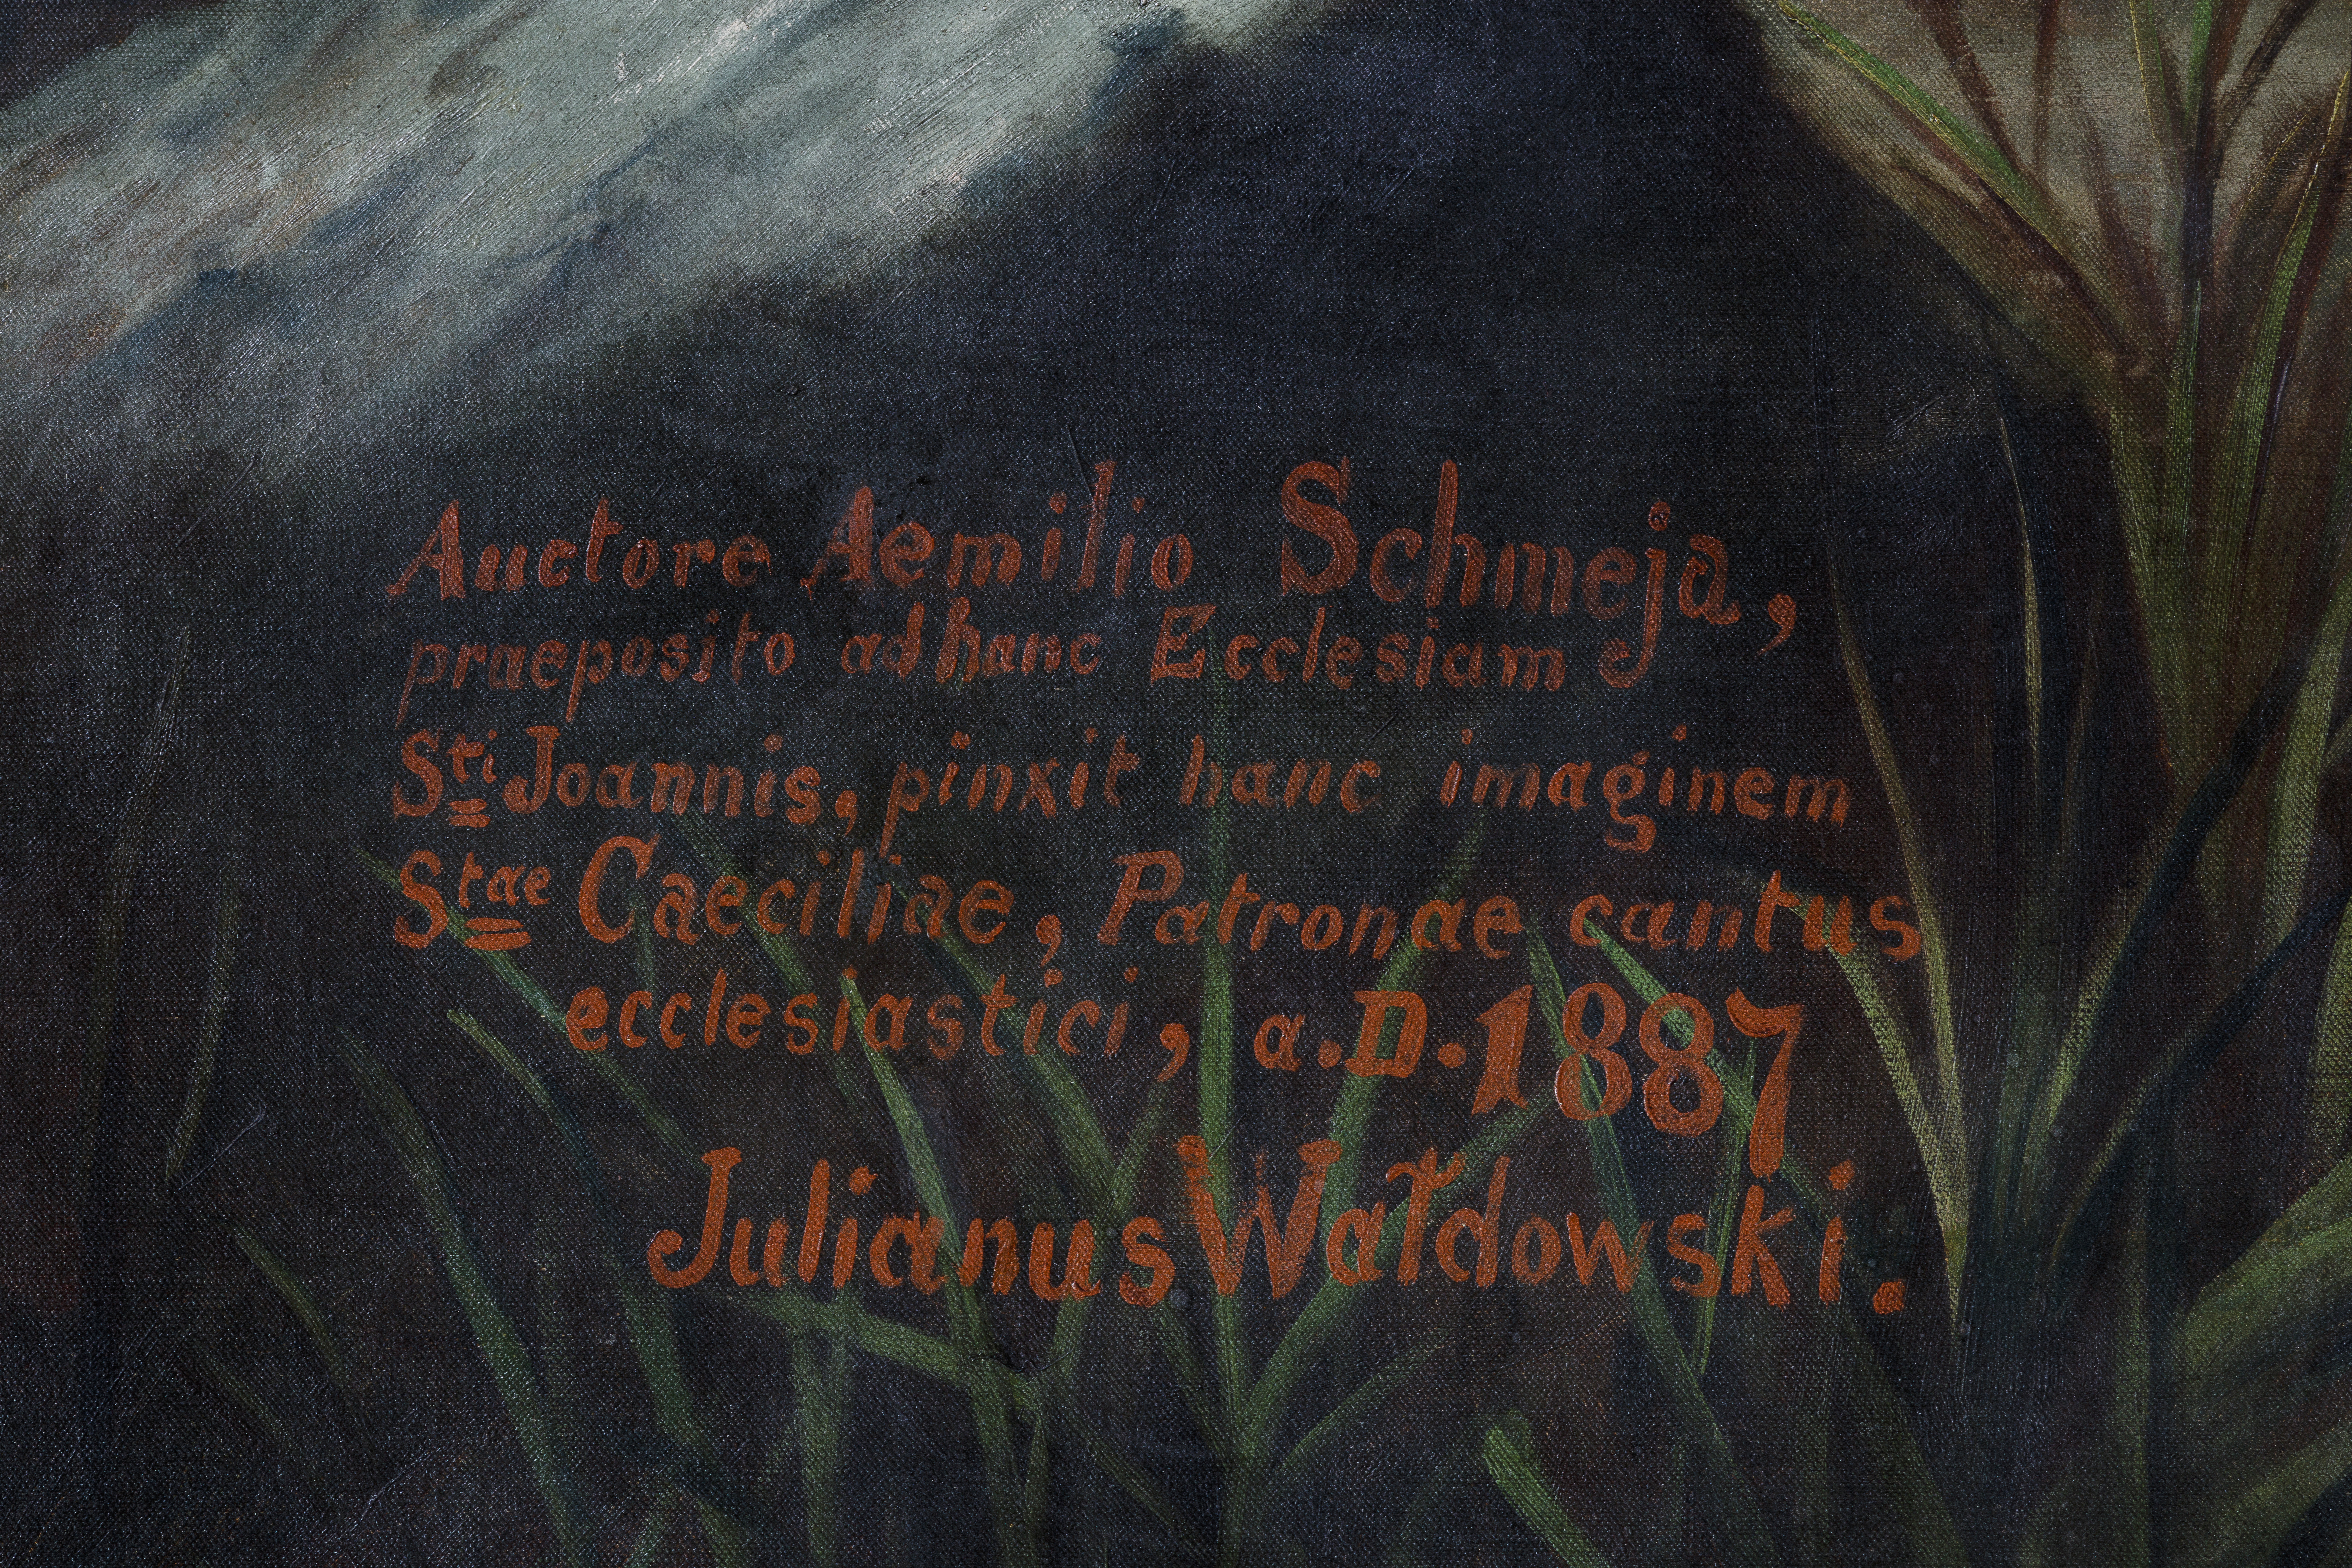 Auctore Aemilio Schmeja,
praeposito ad hanc Ecclesiam
Sti Joannis, pinxit hanc imaginem
Stae Caeciliae, Patronae cantus
ecclesiastici, a.D. 1887
Julianus Wałdowski.